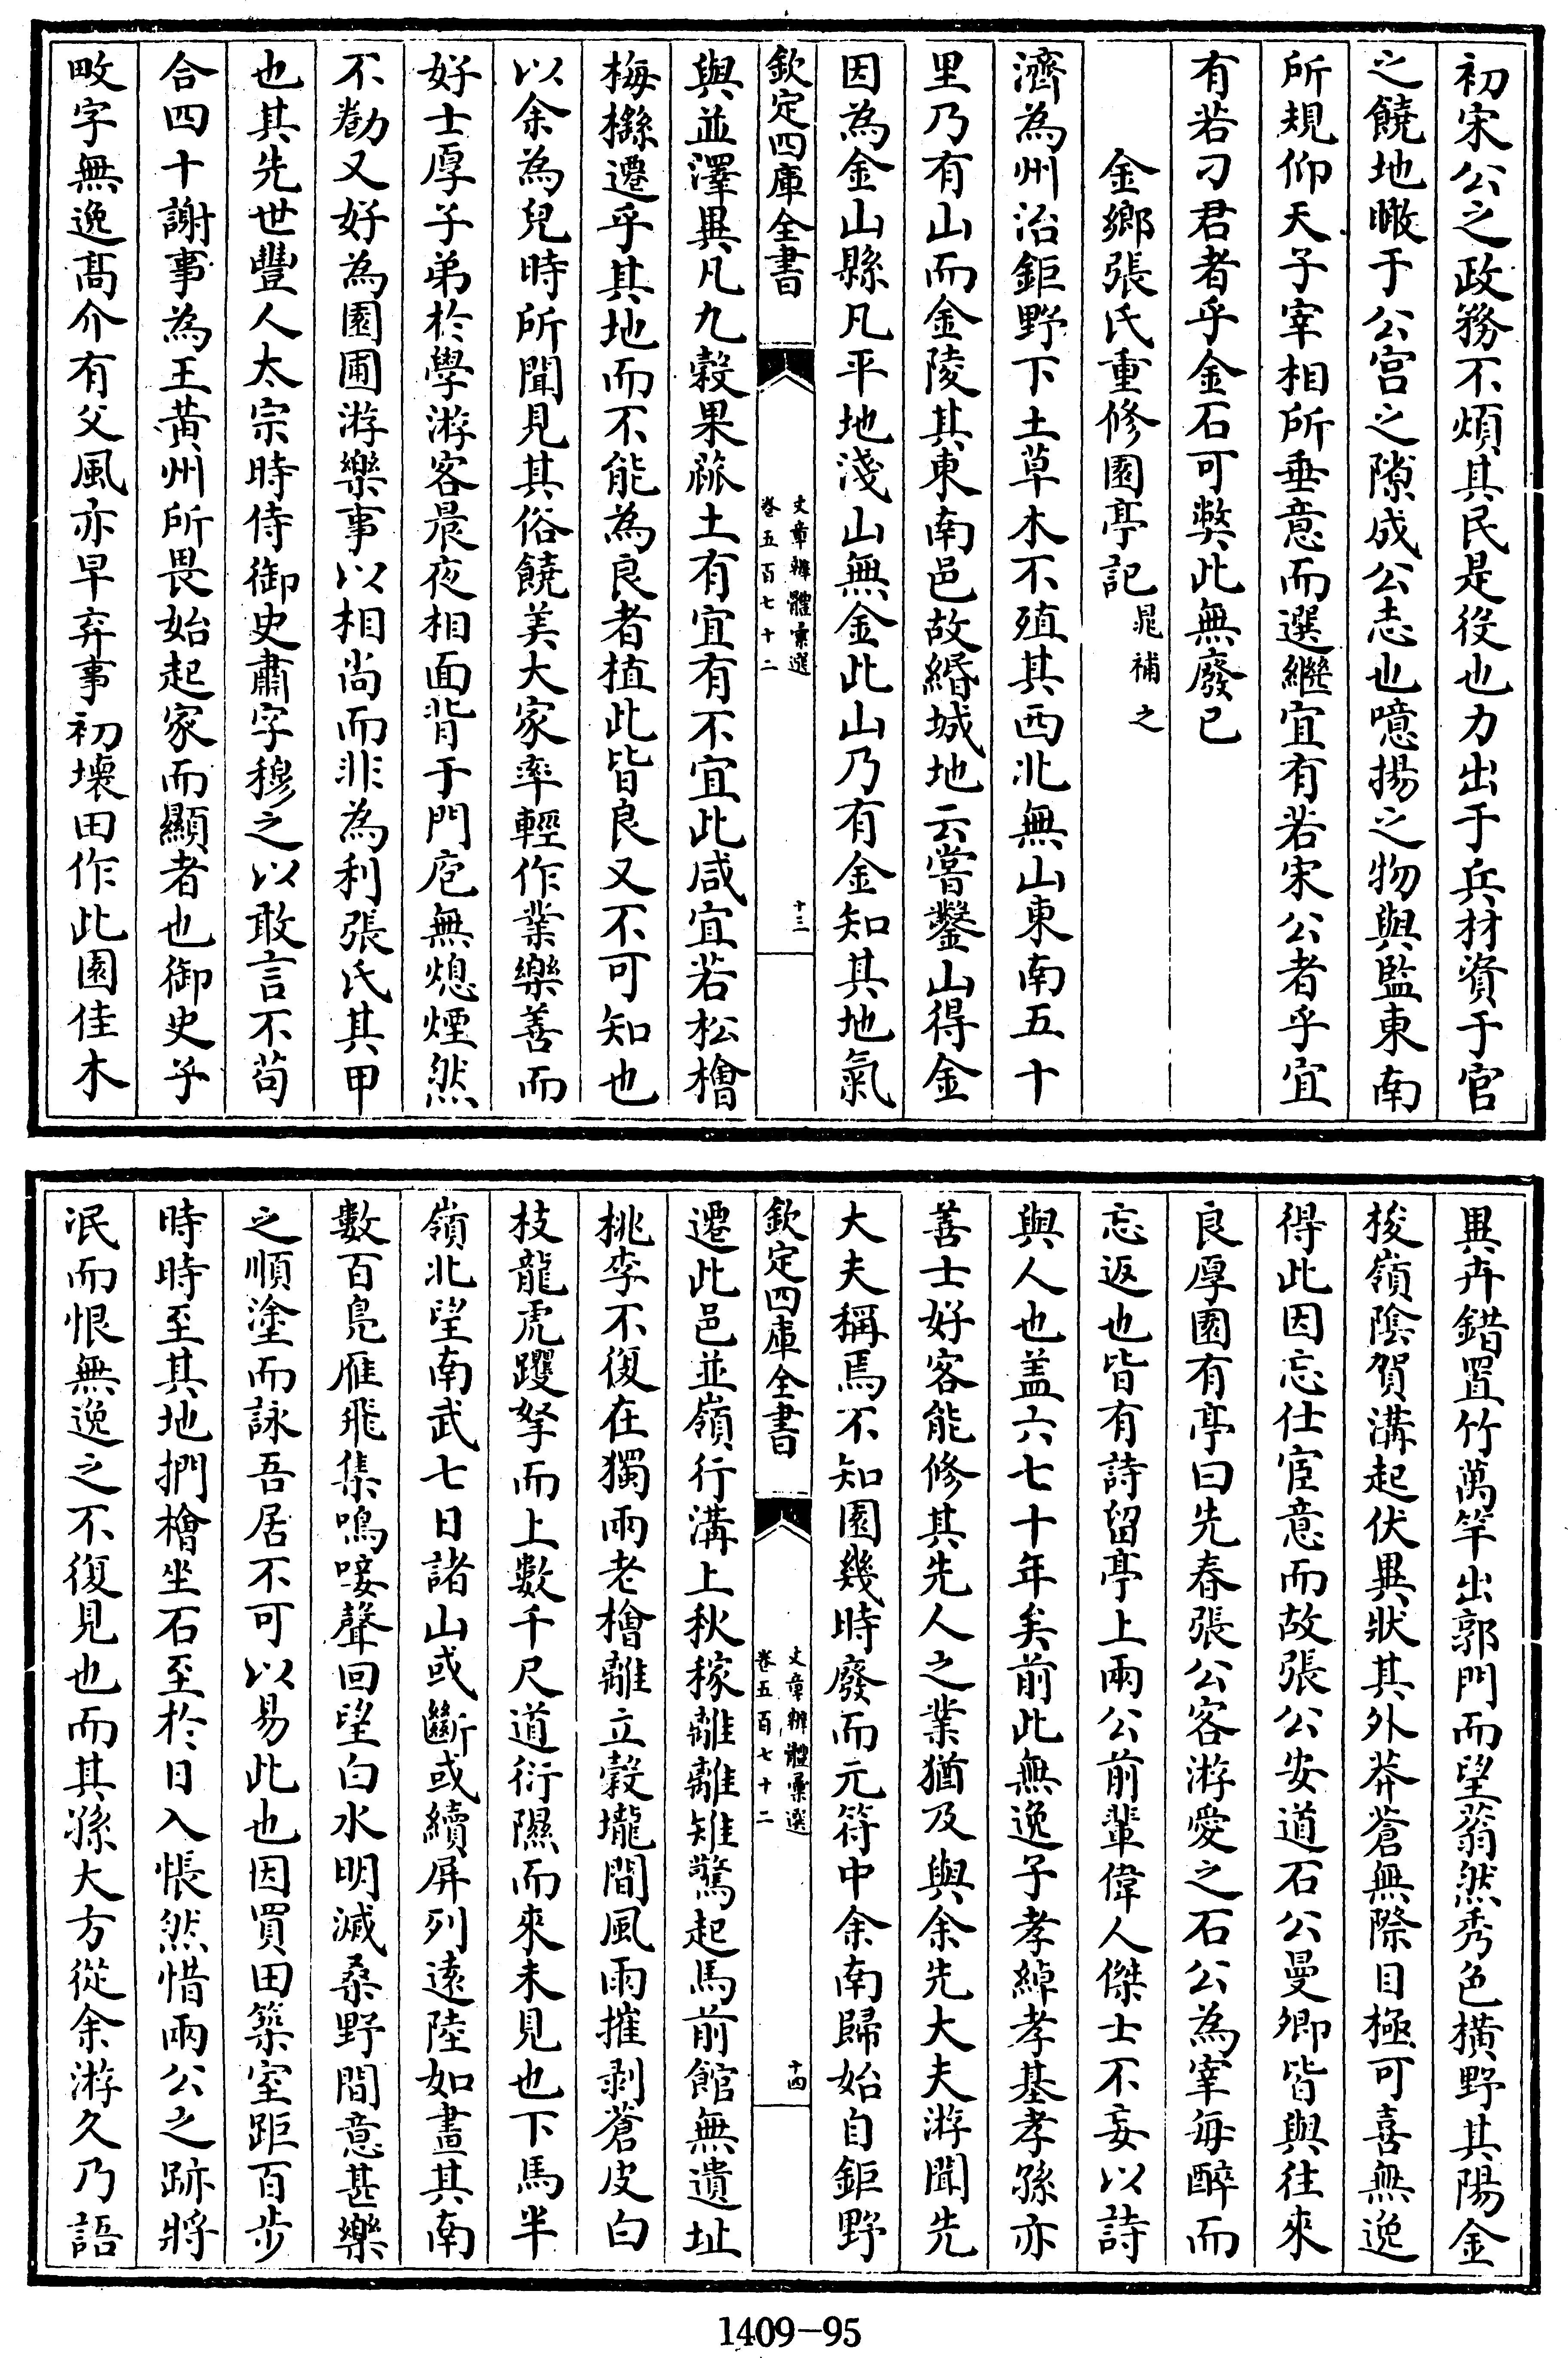 初宋公之政務不煩其民是役也力出于兵材資于官
之饒地瞰于公宫之隙成公志也噫揚之物與監東南
所規仰天子宰相所垂意而選繼宜有若宋公者乎宜
有若刁君者乎金石可弊此無廢已
金鄉張氏重修園亭記晁補之
濟為州治鉅野下土草木不殖其西北無山東南五十
里乃有山而金陵其東南邑故緡城地云嘗鑿山得金
因為金山縣凡平地淺山無金此山乃有金知其地氣
欽定四庫全書
文章辨體彙選
卷五百七十二
十三
與並澤異凡九榖果蓏土有宜有不宜此咸宜若松檜
梅櫾遷乎其地而不能為良者植此皆良又不可知也
以余為兒時所聞見其俗饒美大家率輕作業樂善而
好士厚子弟於學游客晨夜相面背于門庖無熄煙然
不勸又好為園圃游樂事以相尚而非為利張氏其甲
也其先世豐人太宗時侍御史肅字穆之以敢言不苟
合四十謝事為王黄州所畏始起家而顯者也御史子
畋字無逸髙介有父風亦早弃事初壊田作此園佳木
異卉錯置竹萬竿出郭門而望蓊然秀色横野其陽金
梭嶺陰賀溝起伏異狀其外莽蒼無際目極可喜無逸
得此因忘仕宦意而故張公安道石公曼卿皆與往來
良厚園有亭曰先春張公客游愛之石公為宰每醉而
忘返也皆有詩留亭上兩公前輩偉人傑士不妄以詩
與人也盖六七十年矣前此無逸子孝綽孝基孝孫亦
善士好客能修其先人之業猶及與余先大夫游聞先
大夫稱焉不知園幾時廢而元符中余南歸始自鉅野
欽定四庫全書
文章辨體彙選
卷五百七十二
十四
遷此邑並嶺行溝上秋稼離離雉驚起馬前館無遺址
桃李不復在獨兩老檜離立榖壠間風雨摧剥蒼皮白
枝龍虎躩拏而上數千尺道衍隰而來未見也下馬半
嶺北望南武七日諸山或斷或續屏列遠陸如畫其南
數百鳬雁飛集鳴唼聲回望白水明滅桑野間意甚樂
之順塗而詠吾居不可以易此也因買田築室距百步
時時至其地捫檜坐石至於日入悵然惜兩公之跡將
泯而恨無逸之不復見也而其孫大方從余游久乃語
1409-95